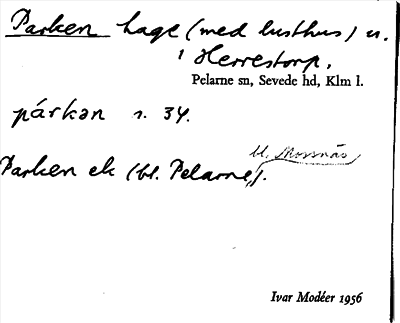 Parken hage (med lusthus) u.
i Herrestorp.
Pelarne sn, Sevede hd, Klm l.
párkən s. 34.
bl. Mossnäs
Parken ek (bl. Pelarne).
Ivar Modéer 1956